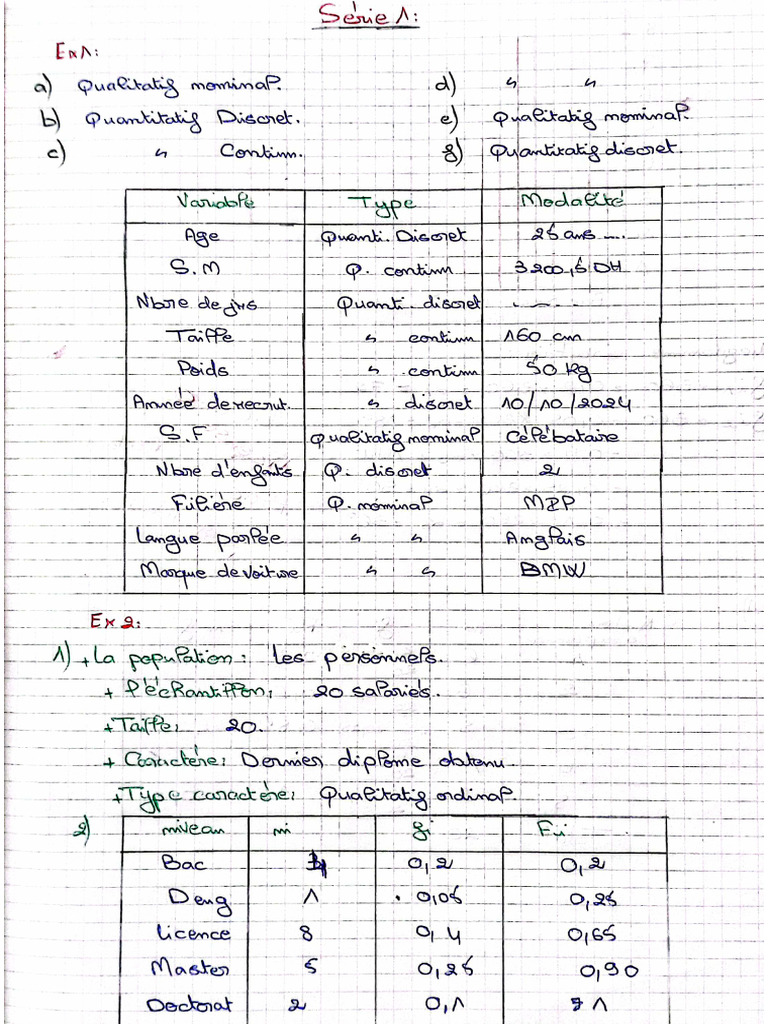 Série 1:
Ex1:
a) Qualitatif nominal.
b) Quantitatif Discret.
c) " Continu.
d) " "
e) Qualitatif nominal.
f) Quantitatif discret.
Variable Type Modalité
Age Quanti. Discret 25 ans ....
S.M Q. continu 3200,5 DH
Nbre de jrs Quanti. discret .....
Taille " continu 160 cm
Poids " continu 50 kg
Année de recrut. " discret 10/10/2024
S.F Qualitatif nominal Célébataire
Nbre d'enfants Q. discret 2
Filière Q. nominal MIP
Langue parlée " " Anglais
Marque de voiture " " BMW
Ex 2:
1) + La population: Les personnels.
+ l'échantillon: 20 salariés.
+ Taille: 20.
+ Caractère: Dernier diplôme obtenu
+ Type caractère: Qualitatif ordinal.
2)
niveau ni fi Fi
Bac 4 0,2 0,2
Deug 1 0,05 0,25
Licence 8 0,4 0,65
Master 5 0,25 0,90
Doctorat 2 0,1 1